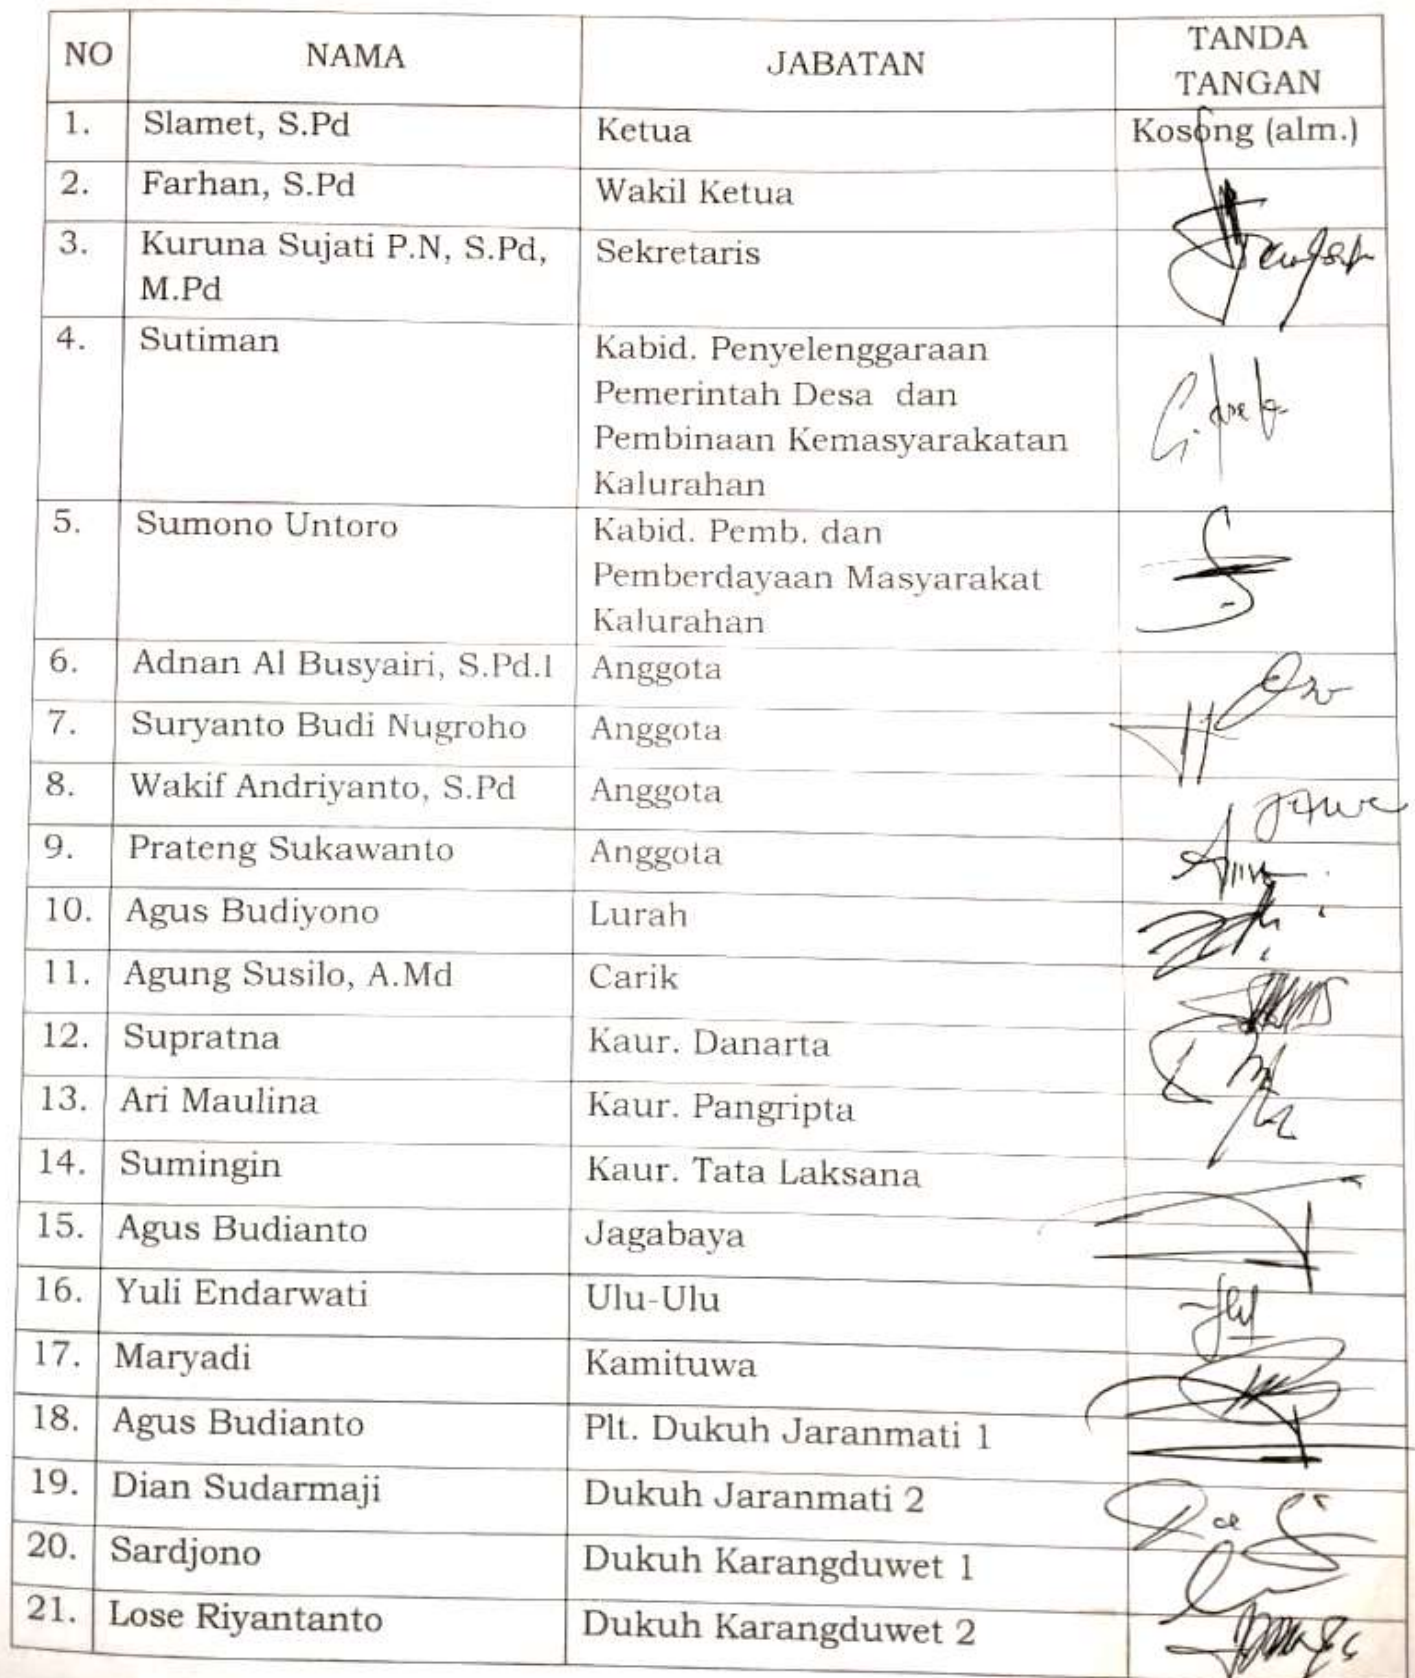 NO NAMA JABATAN TANDA
TANGAN
1. Slamet, S.Pd Ketua Kosong (alm.)
2. Farhan, S.Pd Wakil Ketua
3. Kuruna Sujati P.N, S.Pd, Sekretaris
M.Pd
4. Sutiman Kabid. Penyelenggaraan
Pemerintah Desa dan
Pembinaan Kemasyarakatan
Kalurahan
5. Sumono Untoro Kabid. Pemb. dan
Pemberdayaan Masyarakat
Kalurahan
6. Adnan Al Busyairi, S.Pd.I Anggota
7. Suryanto Budi Nugroho Anggota
8. Wakif Andriyanto, S.Pd Anggota
9. Prateng Sukawanto Anggota
10. Agus Budiyono Lurah
11. Agung Susilo, A.Md Carik
12. Supratna Kaur. Danarta
13. Ari Maulina Kaur. Pangripta
14. Sumingin Kaur. Tata Laksana
15. Agus Budianto Jagabaya
16. Yuli Endarwati Ulu-Ulu
17. Maryadi Kamituwa
18. Agus Budianto Plt. Dukuh Jaranmati 1
19. Dian Sudarmaji Dukuh Jaranmati 2
20. Sardjono Dukuh Karangduwet 1
21. Lose Riyantanto Dukuh Karangduwet 2